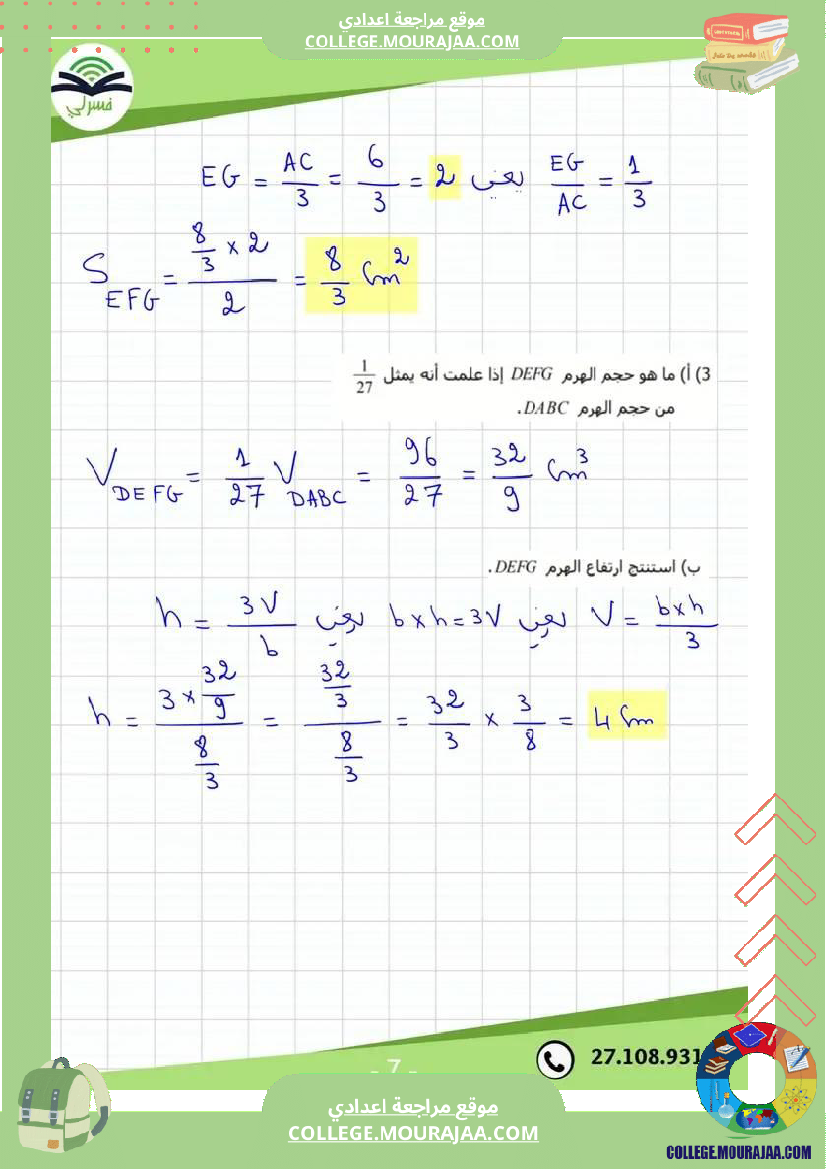 موقع مراجعة اعدادي
COLLEGE.MOURAJAA.COM
فسرلي
EG = AC/3 = 6/3 = 2 يعني EG/AC = 1/3
S EFG = (8/3 × 2)/2 = 8/3 Cm²
3) أ) ما هو حجم الهرم DEFG إذا علمت أنه يمثل 1/27
من حجم الهرم DABC.
V DEFG = 1/27 V DABC = 96/27 = 32/9 Cm³
ب) استنتج ارتفاع الهرم DEFG.
h = 3V/b يعني b×h=3V يعني V = b×h/3
h = (3 × 32/9)/(8/3) = (32/3)/(8/3) = 32/3 × 3/8 = 4 Cm
27.108.931
- 7 -
موقع مراجعة اعدادي
COLLEGE.MOURAJAA.COM
COLLEGE.MOURAJAA.COM